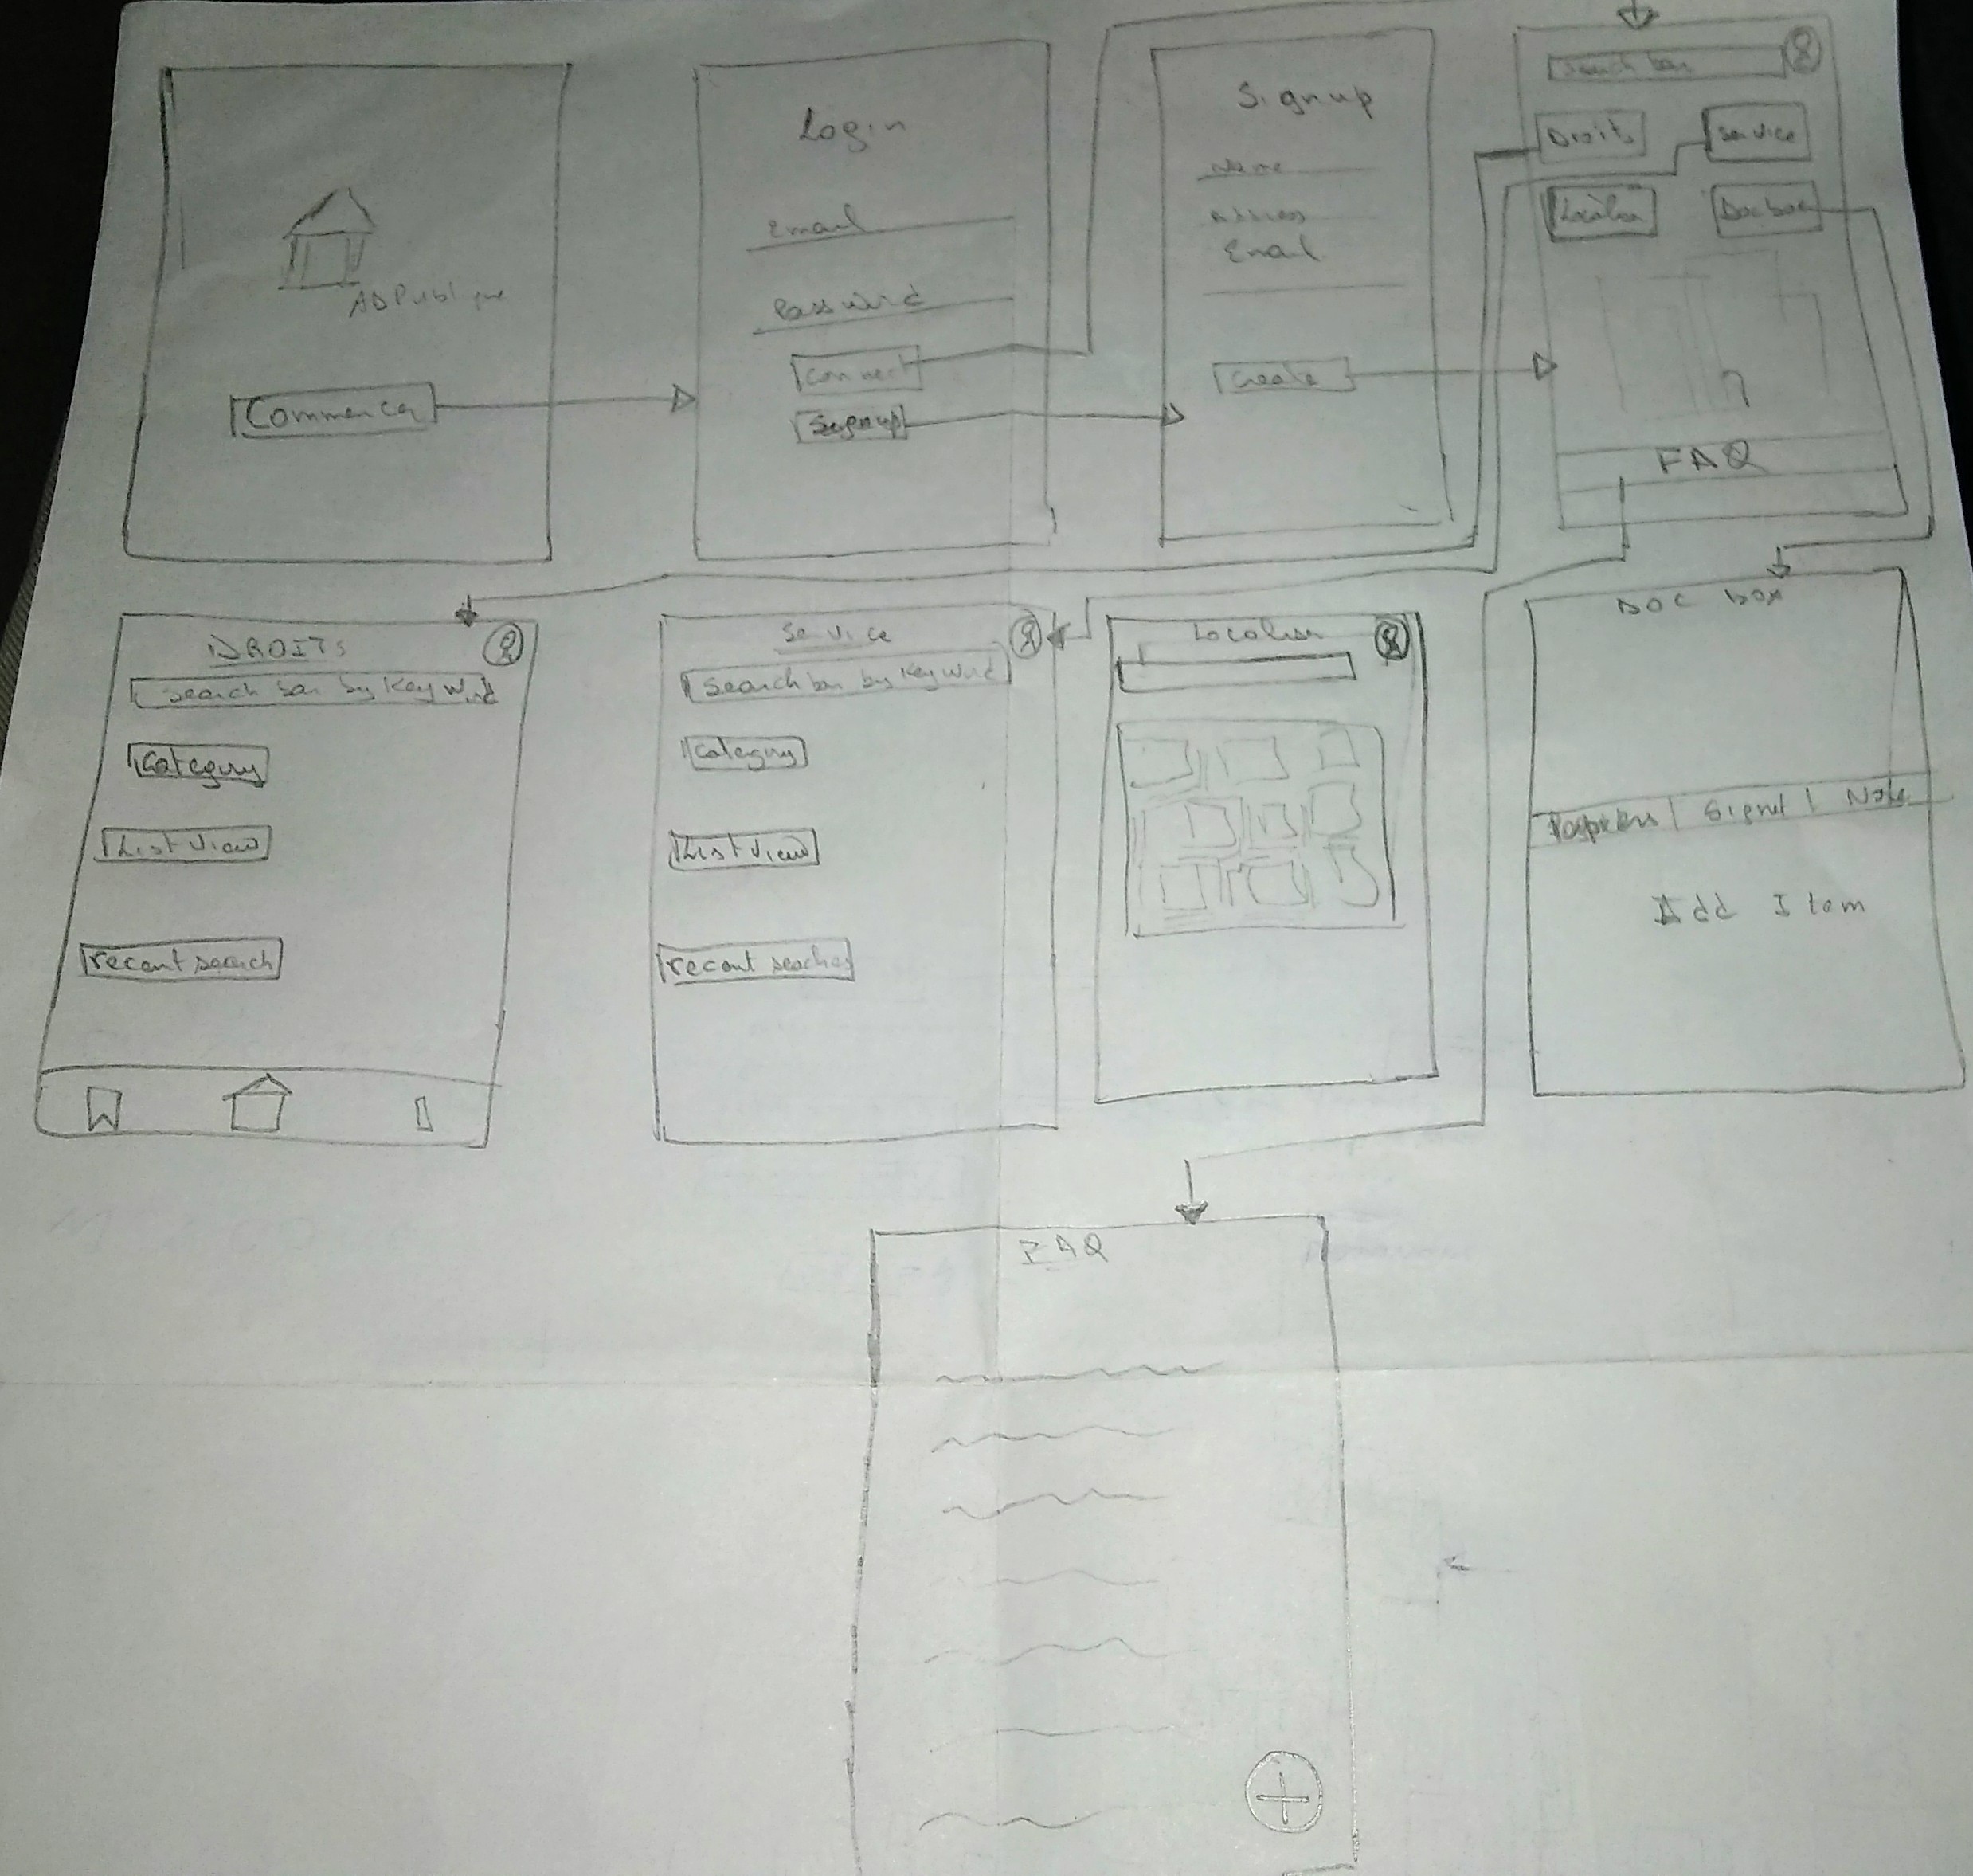 ADPublique
Commencer
Login
Email
Password
Connect
Signup
Signup
Name
Address
Email
Create
Search bar
Droits
Service
Localiser
Doc box
FAQ
DROITS
Search bar by Key Word
Category
List View
recent search
Service
Search bar by Key Word
Category
List View
recent searches
Localiser
DOC BOX
| Signet | Note
Add Item
FAQ